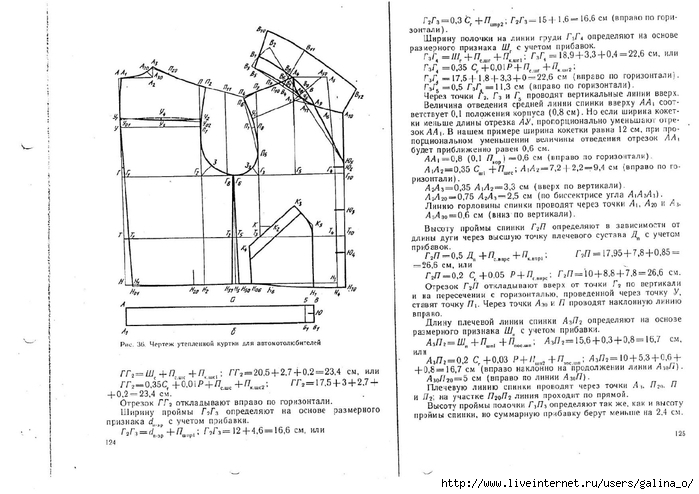 Рис. 36. Чертеж утепленной куртки для автотолюбителей
ГГ₂=Ш_с+П_с.шс+П_к.шс1; ГГ₂=20,5+2,7+0,2=23,4 см, или
ГГ₂=0,35С_г+0,01Р+П_с.шс+П_к.шс2; ГГ₂=17,5+3+2,7+
+0,2=23,4 см.
Отрезок ГГ₂ откладывают вправо по горизонтали.
Ширину проймы Г₂Г₃ определяют на основе размерного
признака d_п.зр с учетом прибавок.
Г₂Г₃=d_п.зр+П_шпр1; Г₂Г₃=12+4,6=16,6 см, или
124
Г₂Г₃=0,3 С_г+П_шпр2; Г₂Г₃=15+1,6=16,6 см (вправо по гори-
зонтали).
Ширину полочки на линии груди Г₃Г₄ определяют на основе
размерного признака Ш_г с учетом прибавок.
Г₃Г₄=Ш_г+П_с.шг+П_к.шг1; Г₃Г₄=18,9+3,3+0,4=22,6 см, или
Г₃Г₄=0,35 С_г+0,01Р+П_с.шг+П_к.шг2;
Г₃Г₄=17,5+1,8+3,3+0=22,6 см (вправо по горизонтали).
Г₃Г₅=0,5 Г₃Г₄=11,3 см (вправо по горизонтали).
Через точки Г₂, Г₃ и Г₄ проводят вертикальные линии вверх.
Величина отведения средней линии спинки вверху АА₁ соот-
ветствует 0,1 положения корпуса (0,8 см). Но если ширина кокет-
ки меньше длины отрезка АУ, пропорционально уменьшают отре-
зок АА₁. В нашем примере ширина кокетки равна 12 см, при про-
порциональном уменьшении величины отведения отрезок АА₁
будет приближенно равен 0,6 см.
АА₁=0,8 (0,1 П_кор)=0,6 см (вправо по горизонтали).
А₁А₂=0,35 С_ш1+П_шгс; А₁А₂=7,2+2,2=9,4 см (вправо по го-
ризонтали).
А₂А₃=0,35 А₁А₂=3,3 см (вверх по вертикали).
А₂А₂₀=0,75 А₂А₃=2,5 см (по биссектрисе угла А₁А₂А₃).
Линию горловины спинки проводят через точки А₁, А₂₀ и А₃.
А₃А₃₀=0,6 см (вниз по вертикали).
Высоту проймы спинки Г₂П определяют в зависимости от
длины дуги через высшую точку плечевого сустава Д_п с учетом
прибавок.
Г₂П=0,5 Д_п+П_с.впрс+П_к.впрс; Г₂П=17,95+7,8+0,85=
=26,6 см, или
Г₂П=0,2 С_г+0,05 Р+П_с.впрс; Г₂П=10+8,8+7,8=26,6 см.
Отрезок Г₂П откладывают вверх от точки Г₂ по вертикали
и на пересечении с горизонталью, проведенной через точку У,
ставят точку П₁. Через точки А₃₀ и П проводят наклонную линию
вправо.
Длину плечевой линии спинки А₃П₂ определяют на основе
размерного признака Ш_п с учетом прибавки.
А₃П₂=Ш_п+П_шп1+П_пос.шп; А₃П₂=15,6+0,3+0,8=16,7 см,
или
А₃П₂=0,2 С_г+0,03 Р+П_шп2+П_пос.шп; А₃П₂=10+5,3+0,6+
+0,8=16,7 см (вправо наклонно на продолжении линии А₃₀П).
А₃₀П₂₀=5 см (вправо по линии А₃₀П).
Плечевую линию спинки проводят через точки А₃, П₂₀, П
и П₂; на участке П₂₀П₂ линия проходит по прямой.
Высоту проймы полочки Г₃П₃ определяют так же, как и высоту
проймы спинки, но суммарную прибавку берут меньше на 2,4 см.
125
http://www.liveinternet.ru/users/galina_o/